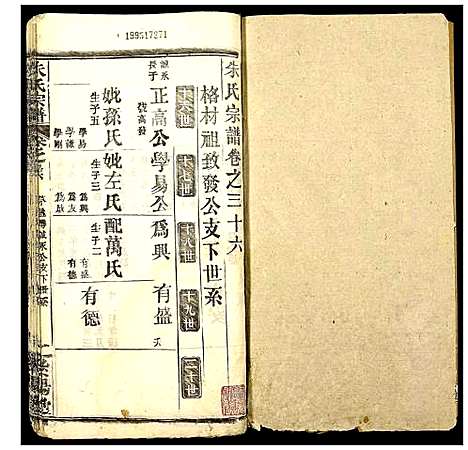 199517271
朱氏宗譜卷之三十六
格材祖致發公支下世系
十六世
十七世
十八世
十九世
二十世
誠承長子
正高公
號高發
學易公
爲興
有盛
妣孫氏
生子五
妣左氏
生子三
配萬氏
生子二
有德
學易
學謙
學剛
爲興
爲友
爲啟
有盛
有德
朱氏宗譜